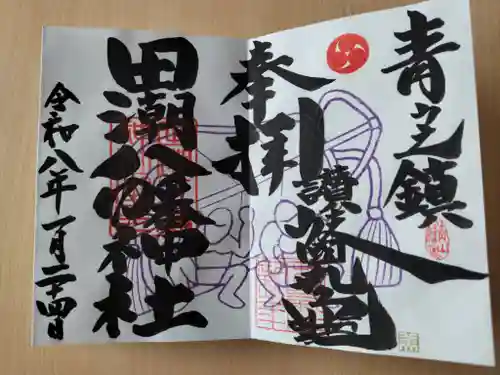 青鎮
讃岐丸亀
奉拝
田潮八幡神社
令和八年一月二十四日